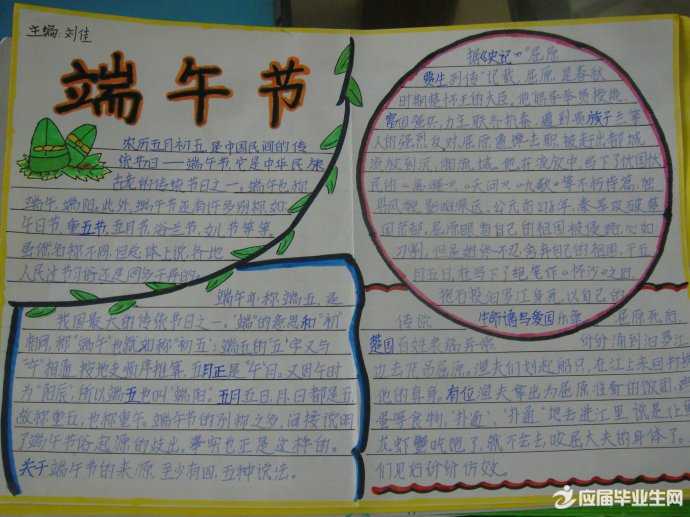 主编:刘佳
端午节
农历五月初五,是中国民间的传
统节日——端午节,它是中华民族
古老的传统节日之一。端午也称
端午,端阳。此外,端午节还有许多别称,如:
午日节,重五节,五月节,浴兰节,女儿节等等。
虽然名称不同,但总体上说,各地
人民过节的习俗还是同多于异的。
端午亦称端五,是
我国最大的传统节日之一,"端"的意思和"初"
相同,称"端午"也就如称"初五";端五的"五"字又与
"午"相通,按地支顺序推算,五月正是"午"月。又因午时
为"阳辰",所以端五也叫"端阳"。五月五日,月、日都是五,
故称重五,也称重午。端午节的别称之多,间接说明
了端午节俗起源的歧出,事实也正是这样的。
关于端午节的来源,至少有四、五种说法。
据《史记》"屈原
贾生列传"记载,屈原,是春秋
时期楚怀王的大臣。他倡导举贤授能,
富国强兵,力主联齐抗秦,遭到贵族子兰等
人的强烈反对,屈原遭谗去职,被赶出都城,
流放到沅、湘流域。他在流放中,写下了忧国忧
民的《离骚》、《天问》、《九歌》等不朽诗篇,独
具风貌,影响深远。公元前278年,秦军攻破楚
国京都,屈原眼看自己的祖国被侵略,心如
刀割,但是始终不忍舍弃自己的祖国,于五
月五日,在写下了绝笔作《怀沙》之后,
抱石投汨罗江身死,以自己的
生命谱写爱国乐章
传说 屈原死后,
楚国百姓哀痛异常 纷纷涌到汨罗江
边去凭吊屈原。渔夫们划起船只,在江上来回打捞
他的真身。有位渔夫拿出为屈原准备的饭团、鸡
蛋等食物,"扑通、扑通"地丢进江里,说是让鱼
龙虾蟹吃饱了,就不会去咬屈大夫的身体了。人
们见后纷纷仿效。
应届毕业生网